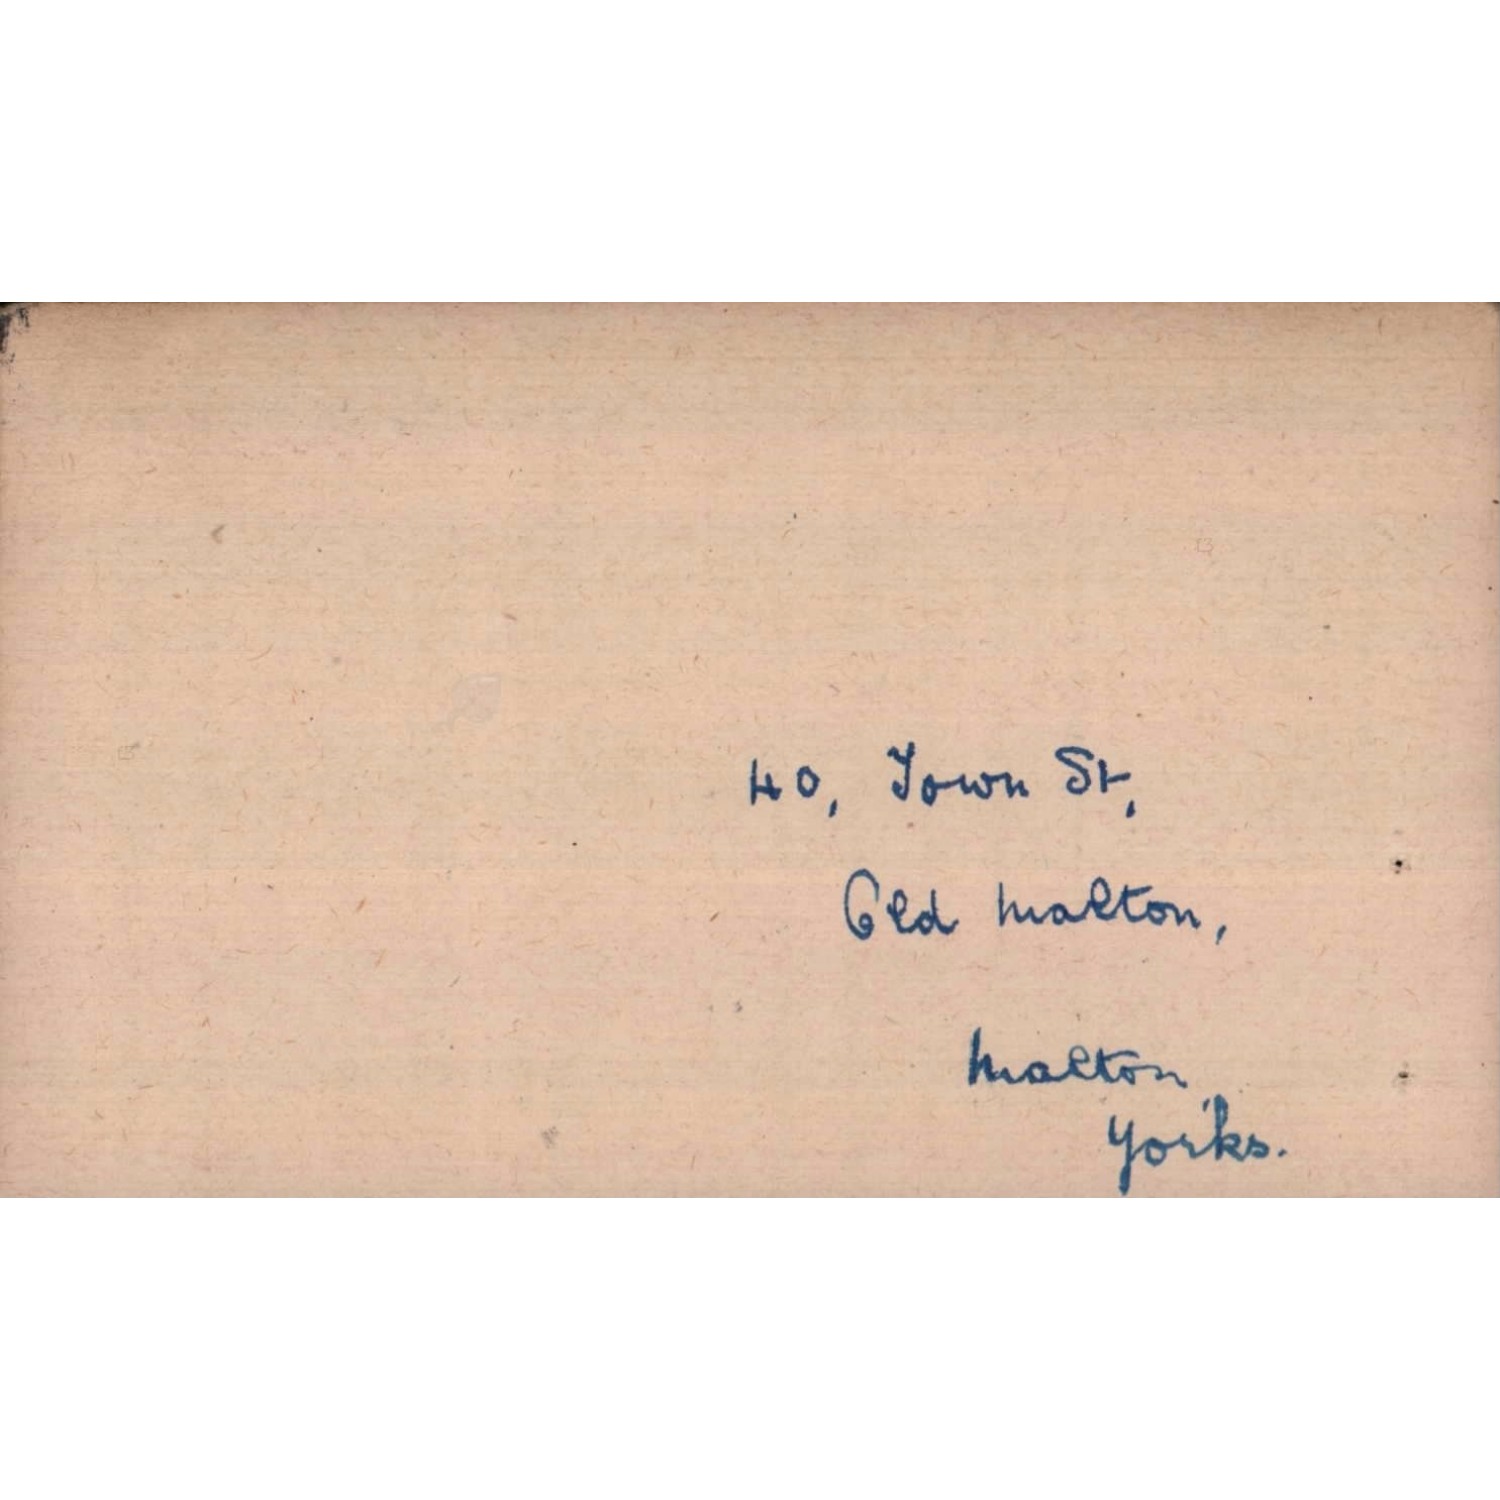 40, Town St,
Old Malton,
Malton,
Yorks.